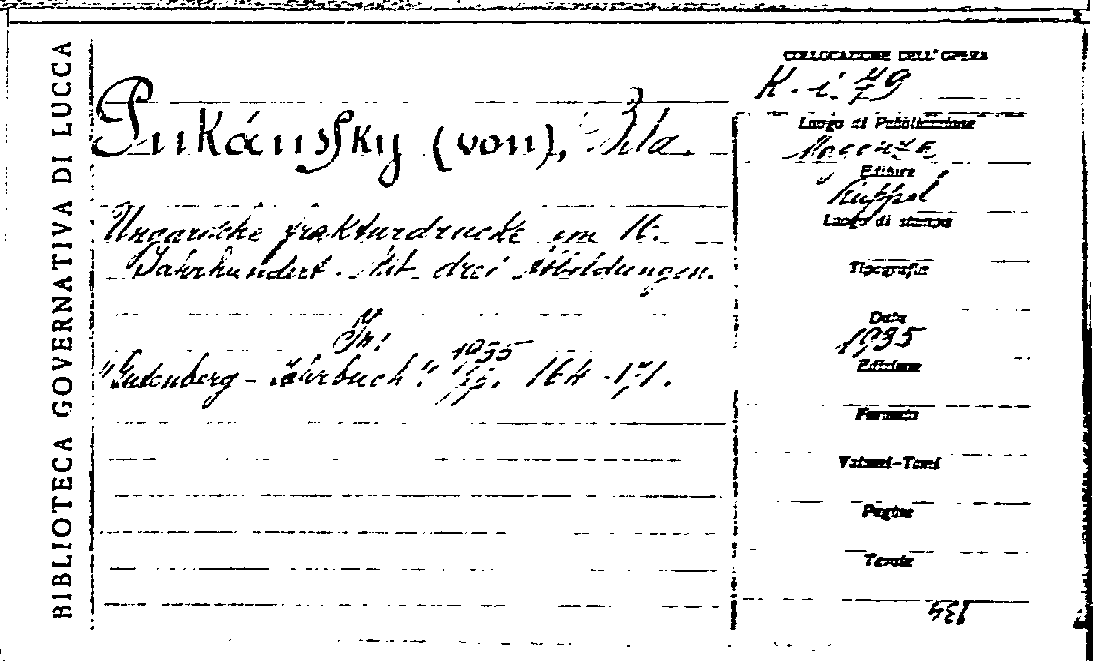 BIBLIOTECA GOVERNATIVA DI LUCCA
Pukánszky (von), Bela.
Ungarische frakturdrucke im 16.
Jahrhundert. Mit drei Abbildungen.
In:
"Gutenberg-Jahrbuch." 1935 pp. 164-171.
COLLOCAZIONE DELL'OPERA
K. i. 79
Luogo di Pubblicazione
Magonza
Editore
Ruppel
Luogo di stampa
Tipografia
Data
1935
Edizione
Formato
Volumi-Tomi
Pagine
Tavole